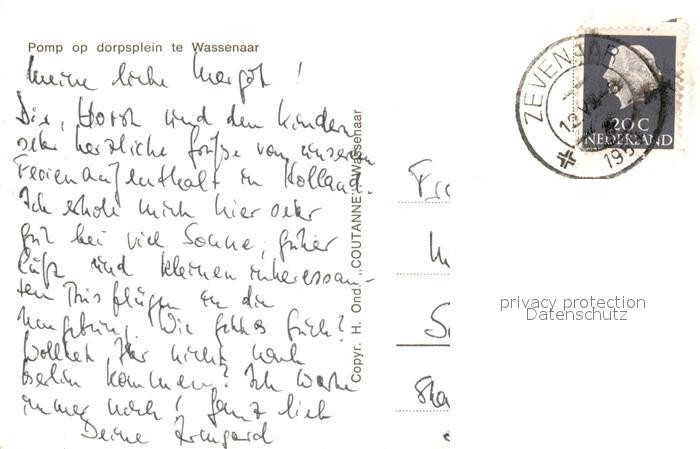 Pomp op dorpsplein te Wassenaar
Meine liebe Margot!
Dir, Horst und den Kindern
sehr herzliche Grüße von unserem
Ferienaufenthalt in Holland.
Ich erhole mich hier sehr
gut bei viel Sonne, guter
Luft und kleinen interessan-
ten Ausflügen in die
Umgebung. Wie geht es Euch?
Wolltet Ihr nicht nach
Berlin kommen? Ich warte
immer noch! Ganz lieb
Deine Irmgard
Copyr. H. Ond. „COUTANNE" Wassenaar
ZEVENAAR
20 C
NEDERLAND
privacy protection
Datenschutz